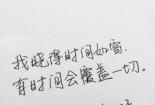 我晓得时间如雪.
有时间会覆盖一切.